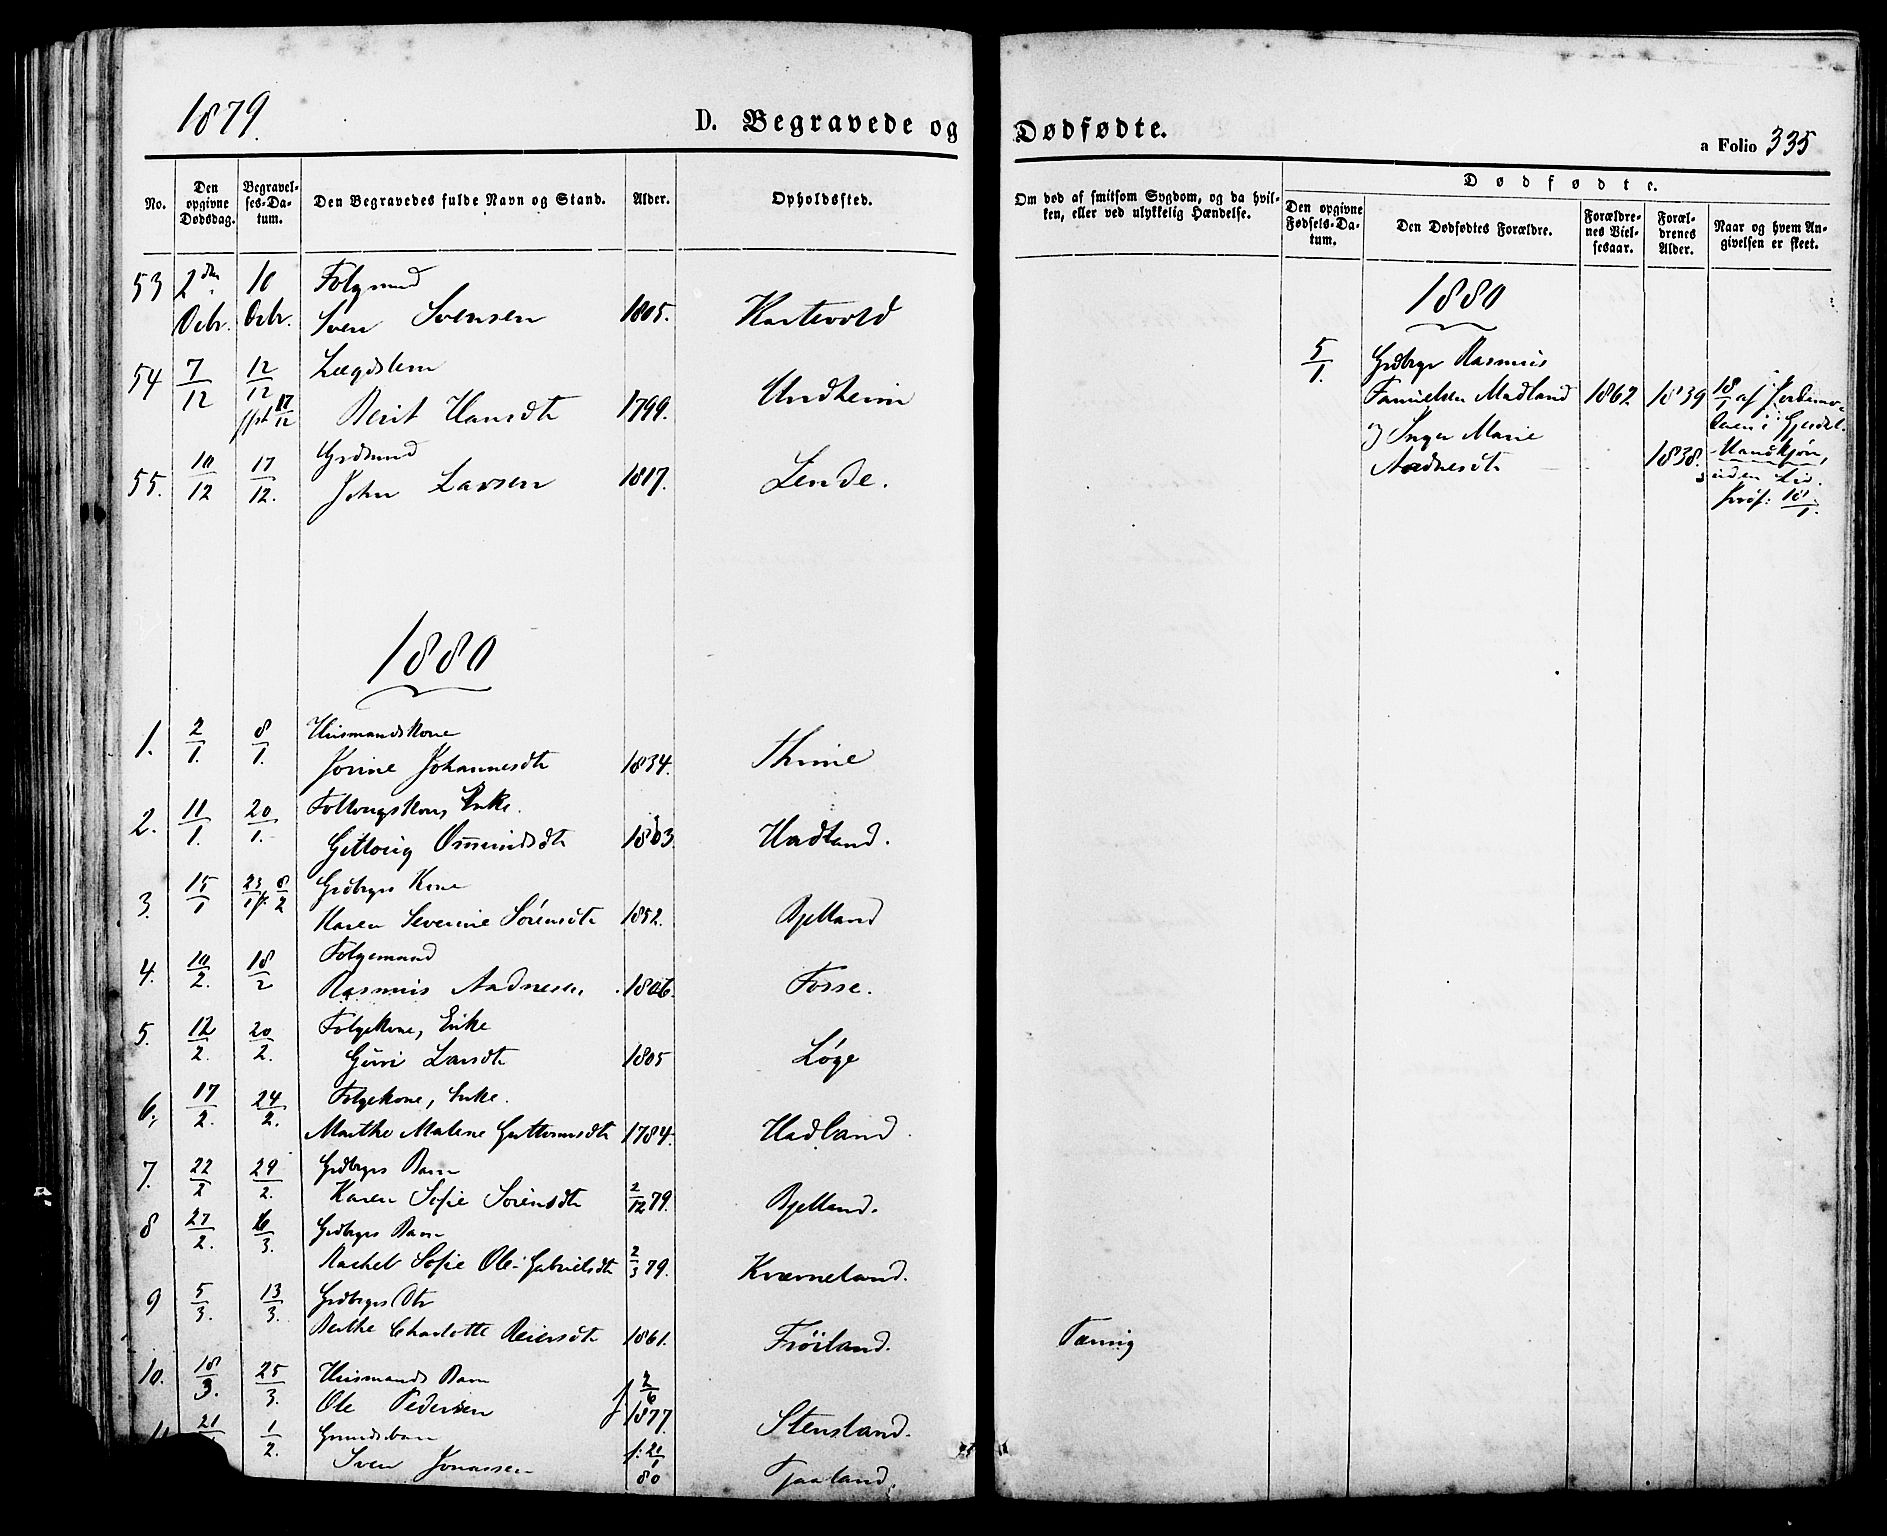 1879.
D. Begravede og Dødfødte.
a Folio 335
No.
Den opgivne Dødsdag.
Begravelses-Datum.
Den Begravedes fulde Navn og Stand.
Alder.
Opholdssted.
Om død af smitsom Sygdom, og da hvilken, eller ved ulykkelig Hændelse.
Dødfødte.
Den opgivne Fødsels-Datum.
Den Dødfødtes Forældre.
Forældrenes Vielsesaar.
Forældrenes Alder.
Naar og hvem Angivelsen er skeet.
53 2den Decbr. 10 Decbr. Folgmd
Sven Svensen 1805. Hartevold
54 7/12 12/12 17/12 Lægdslem
Berit Hansdtr 1799. Undheim
55. 10/12 17/12. Grdmnd
John Larsen 1817. Lende.
1880
5/1. Grdbrgr Rasmus
Madland 1862 1839 18/1 af
og Inger Marie
Aadnesdtr 1838.
uden
18/1.
1880
1. 2/1. 8/1. Huusmandskone
Jorine Johannesdtr 1834. Thime
2. 11/1. 20/1. Enke.
Osmundsdtr 1803 Hadland.
3. 15/1 23/1 8/2 Grdbrgrs Kone
Karen Severine Sörensdtr 1852. Bjelland
4. 10/2. 18/2 Folgemand
Rasmus Aadnesen 1806. Fosse.
5. 12/2. 20/2. Folgekone, Enke
Guri Larsdtr 1805 Løge
6. 17/2. 24/2. Folgekone, Enke.
Marthe Malene Guttormsdtr 1784. Hadland.
7. 22/2 29/2. Grdbrgrs Barn
Karen Sofie Sörensdtr 2/12 79. Bjelland.
8 27/2. 6/3. Grdbrgrs Barn
Rachel Sofie Ole-Gabrielsdtr 2/3 79. Kværneland.
9 5/3. 13/3. Grdbrgrs Dtr
Berthe Charlotte Reiersdtr 1861. Fröiland. Tæring
10. 18/3. 25/3. Huusmands Barn
Ole Pedersen f 2/6 1877. Stensland.
21 1/2. Grmdsbarn
Sven Jonassen f: 20/1 80 Tjaaland.